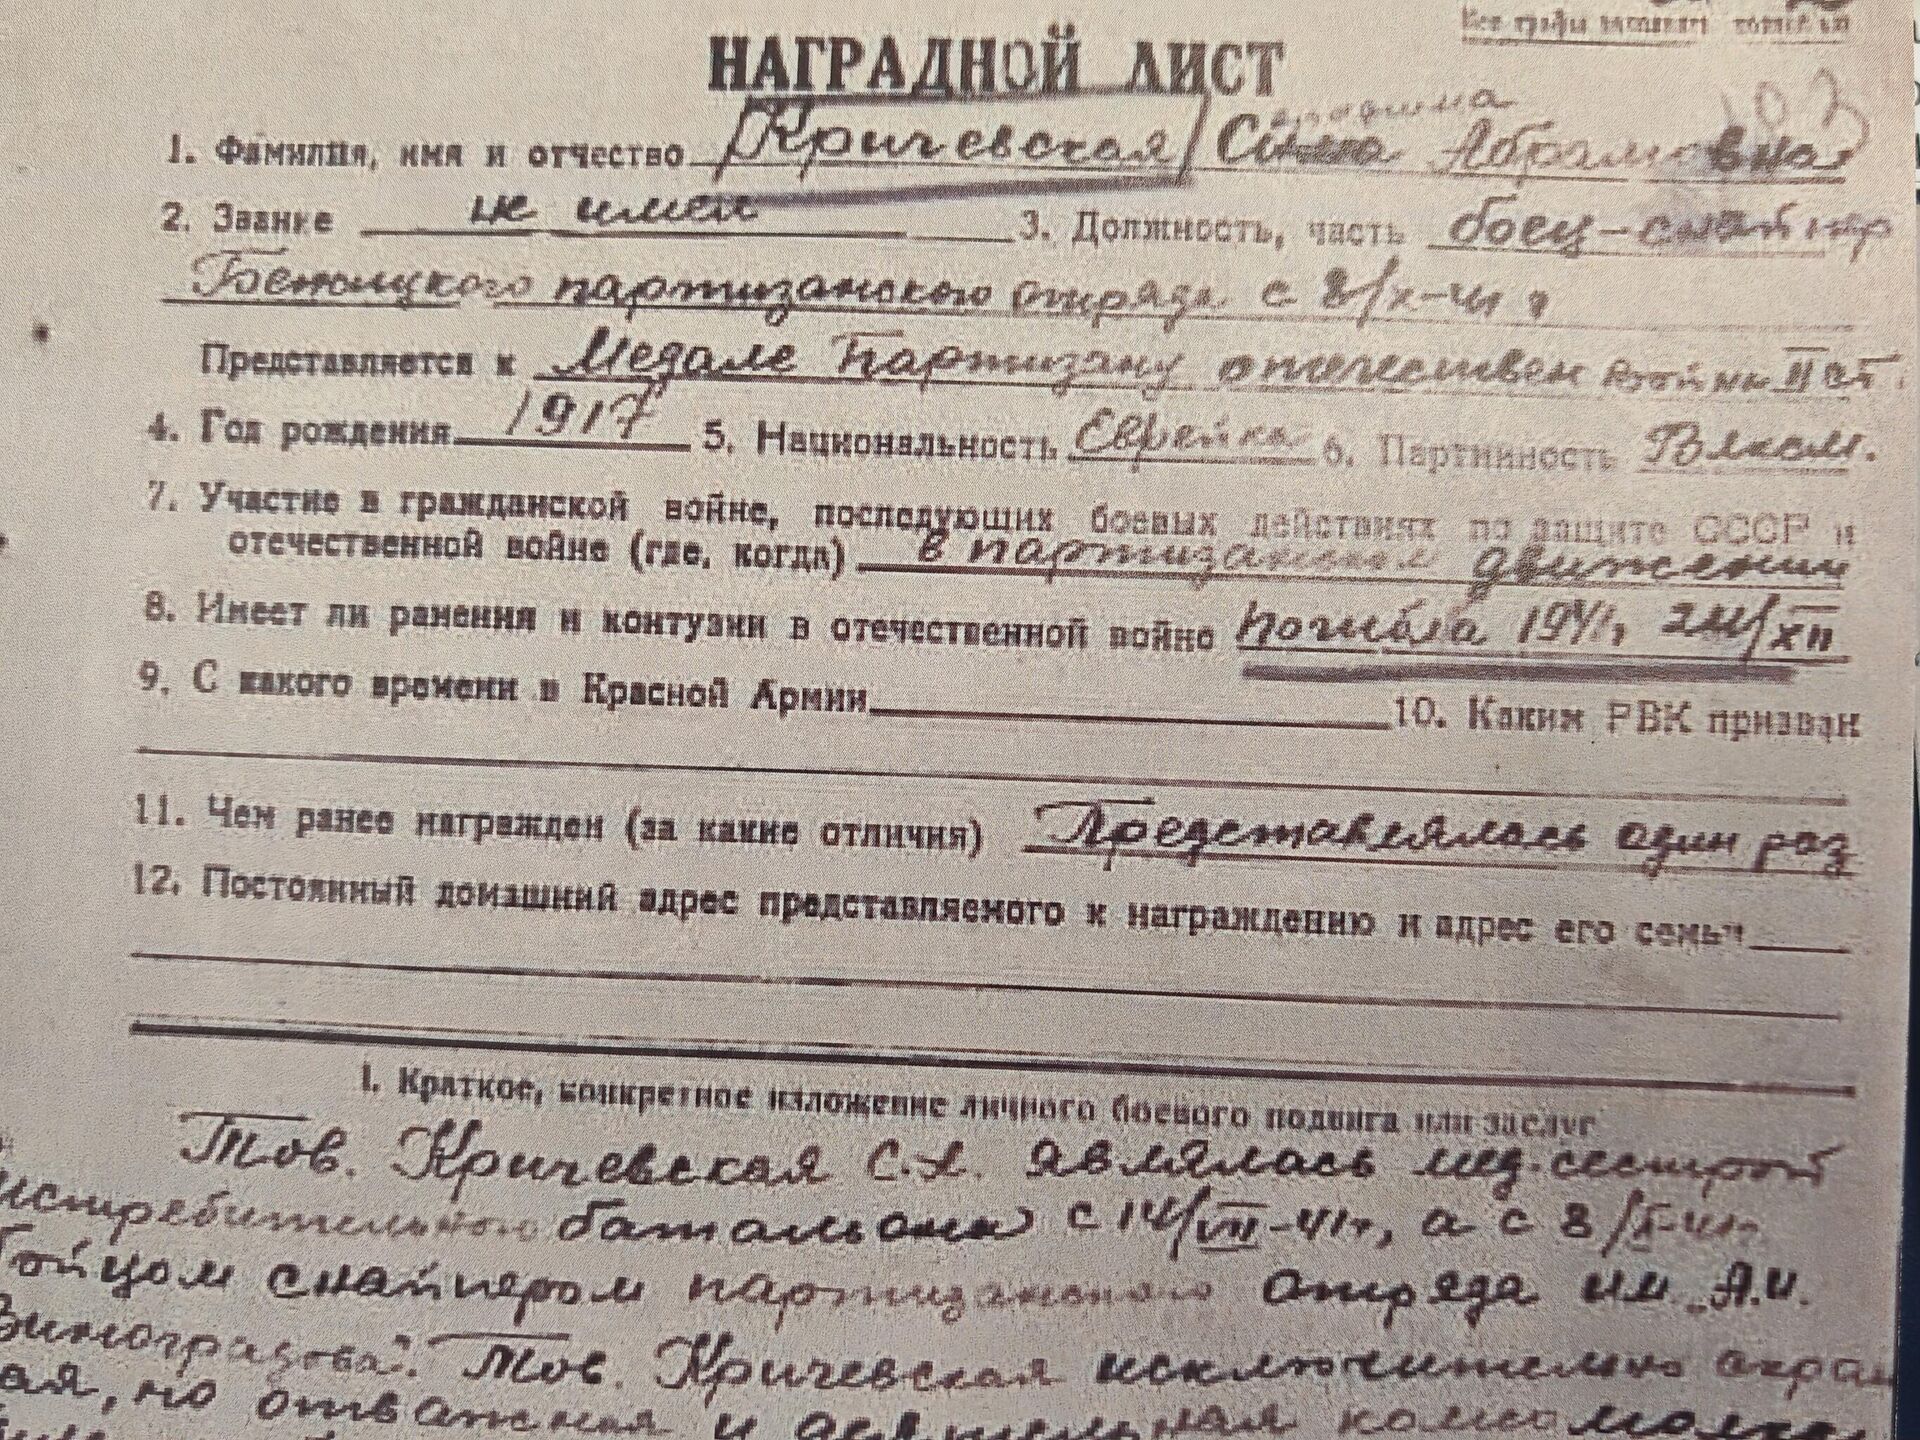 Все графы заполнять
НАГРАДНОЙ ЛИСТ
1. Фамилия, имя и отчество Кричевская Абрамовна
2. Звание не имел 3. Должность, часть боец-снайпер
Бежицкого партизанского отряда с 8/X-41 г
Представляется к Медале Партизану отечествен войны II ст.
4. Год рождения 1917 5. Национальность Еврейка 6. Партийность Влксм.
7. Участие в гражданской войне, последующих боевых действиях по защите СССР и
отечественной войне (где, когда) в партизанском движении
8. Имеет ли ранения и контузии в отечественной войне погибла 1941г
9. С какого времени в Красной Армии 10. Каким РВК призван
11. Чем ранее награжден (за какие отличия) Представлялась один раз
12. Постоянный домашний адрес представляемого к награждению и адрес его семьи
I. Краткое, конкретное изложение личного боевого подвига или заслуг
Тов. Кричевская С.А. являлась мед-сестрой
истребительного батальона с 14/VII-41г, а с 8/X-41г.
бойцом снайпером партизанского отряда им. „А.И.
Виноградова". Тов. Кричевская исключительно скром
ная, но отважная и комсомолка